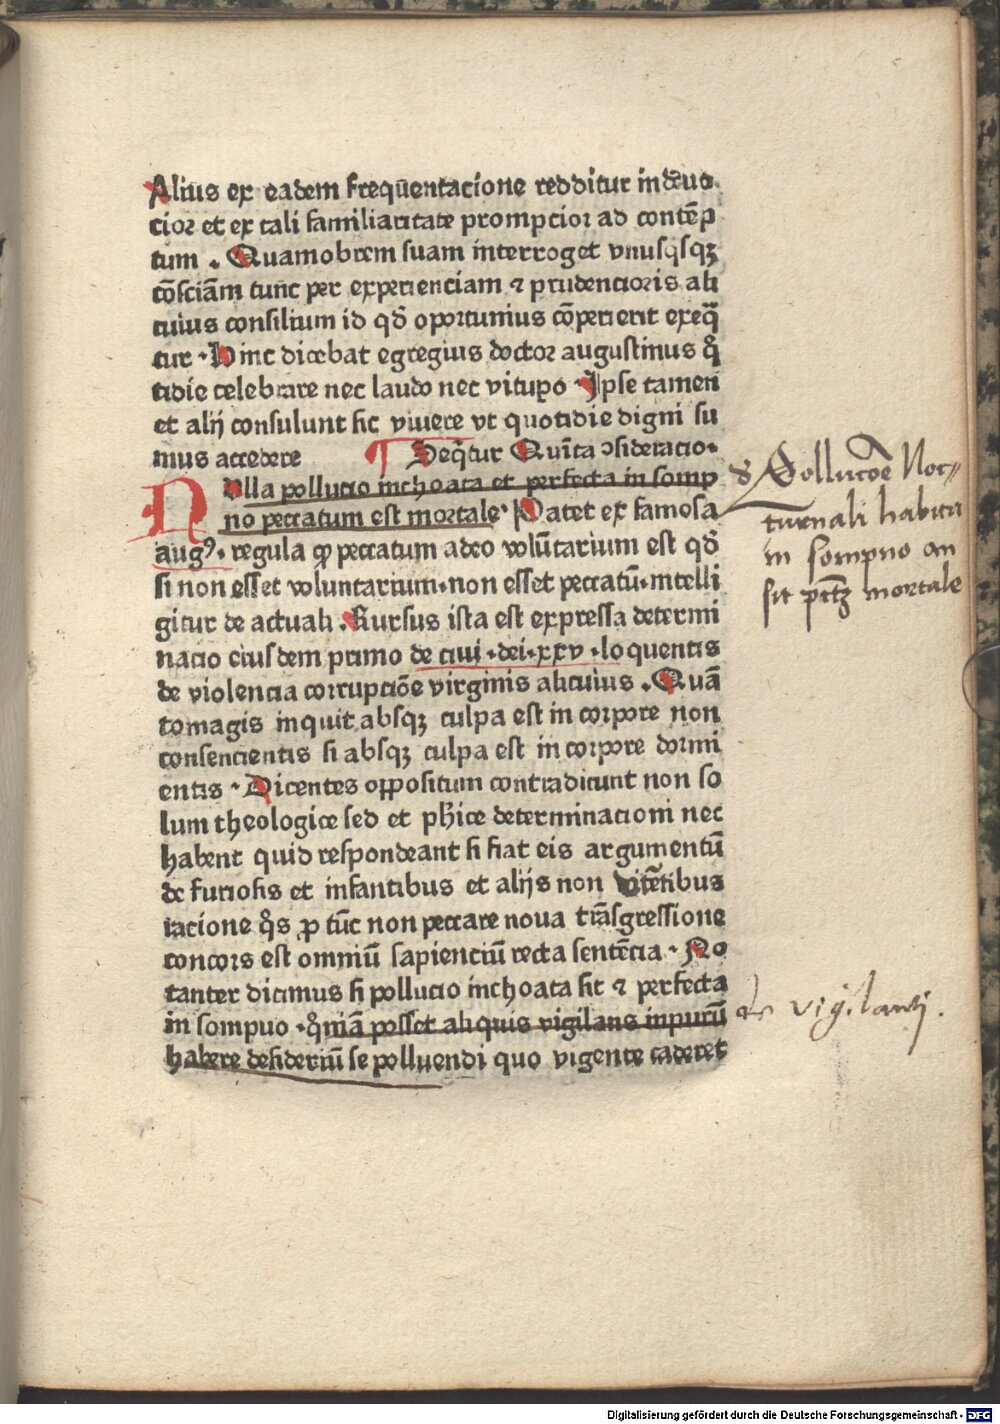 Alius ex eadem frequẽentacione redditur indeuo
cior et ex tali familiaritate prompcior ad contẽp
tum . Quamobrem suam interroget vnusq̃sqꝫ
cõsciãm tunc per experienciam ⁊ prudencioris ali
cuius consilium id qď oportunius cõperierit exeq̃
tur . Hinc dicebat egregius doctor augustinus q̊
tidie celebrare nec laudo nec vitupo . Ipse tamen
et alij consulunt sic viuere vt quotidie digni su
mus accedere ¶ Seq̃tur Quĩta ↄsideracio.
Nulla pollucio inchoata et perfecta in somp
no peccatum est mortale . Patet ex famosa
augꝰ. regula ꝙ peccatum adeo volũtarium est qď
si non esset voluntarium . non esset peccatũ . intelli
gitur de actuali . Rursus ista est expressa determi
nacio eiusdem primo de ciui . dei . xxv . loquentis
de violencia corrupciõe virginis alicuius . Quã
tomagis inquit absqꝫ culpa est in corpore non
consencientis si absqꝫ culpa est in corpore dormi
entis . Dicentes oppositum contradicunt non so
lum theologice sed et phĩce determinacioni nec
habent quid respondeant si fiat eis argumentũ
de furiosis et infantibus et alijs non vtẽtibus
racione q̊s ꝓ tũc non peccare noua trãsgressione
concors est omniũ sapienciũ recta sentẽcia . No
tanter dicimus si pollucio inchoata sit ⁊ perfecta
in sompuo . q̊niãm posset aliquis vigilans inpurũ
habere desideriũ se polluendi quo vigente caderet
Pollucõe Noc
turnali habita
in sompno an
sit pctꝫ mortale
de vigilanti.
Digitalisierung gefördert durch die Deutsche Forschungsgemeinschaft - DFG